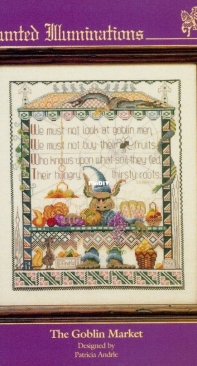 unted Illuminations
We must not look at goblin men,
We must not buy their fruits.
Who knows upon what soil they fed
Their hungry thirsty roots.
The Goblin Market
Designed by
Patricia Andrle